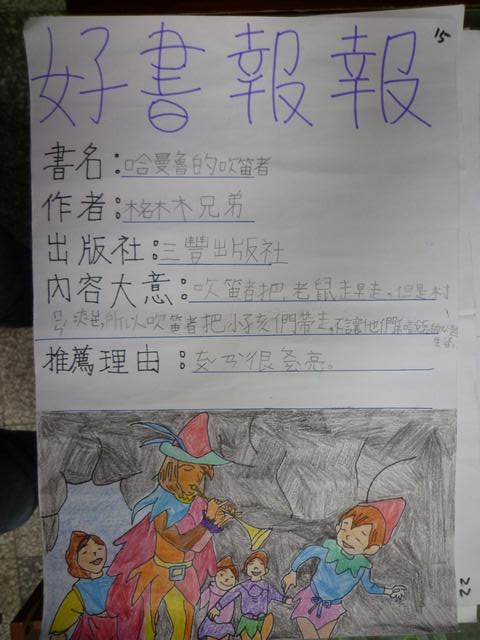 15
好書報報
書名：哈曼魯的吹笛者
作者：格林兄弟
出版社：三豐出版社
內容大意：吹笛者把，老鼠走旱走。但是村
所以吹笛者把小孩們帶走。不讓他們
生活。
推薦理由：很漂亮。
22